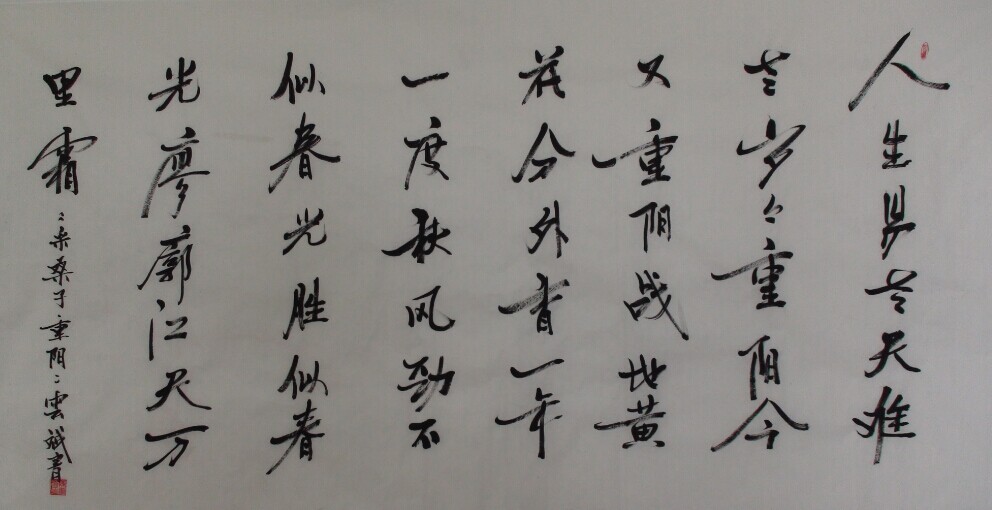 人生易老天难
老岁々重阳今
又重阳战地黄
花分外香一年
一度秋风劲不
似春光胜似春
光廖廓江天万
里霜
采桑子重阳雲斌書